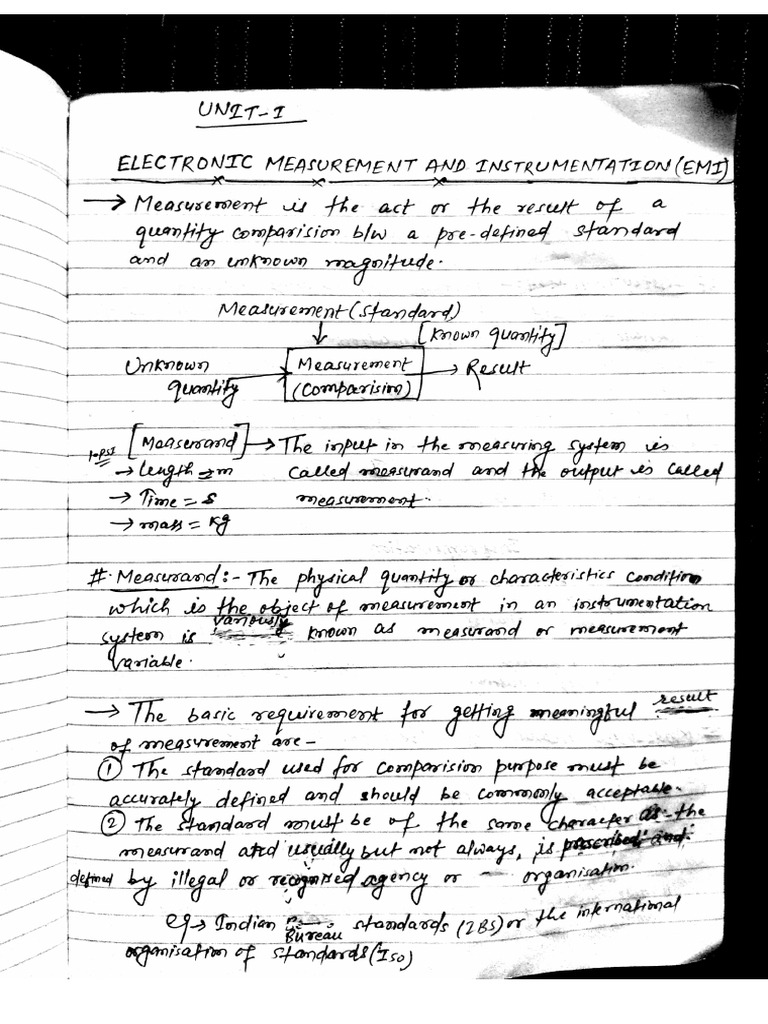 UNIT-I
ELECTRONIC MEASUREMENT AND INSTRUMENTATION (EMI)
→ Measurement is the act or the result of a
quantity comparision b/w a pre-defined standard
and an unknown magnitude.
Measurement (standard)
[Known quantity]
Unknown quantity → Measurement (Comparision) → Result
[Measurand] → The input in the measuring system is
→ length = m called measurand and the output is called
→ Time = s measurement.
→ mass = kg
#. Measurand:- The physical quantity or characteristics condition
which is the object of measurement in an instrumentation
system is variously known as measurand or measurement
variable.
→ The basic requirement for getting meaningful result
of measurement are -
① The standard used for comparision purpose must be
accurately defined and should be commonly acceptable.
② The standard must be of the same character as the
measurand and usually but not always, is prescribed and
defined by illegal or recognized agency or organisation.
eg → Indian Bureau standards (IBS) or the international
organisation of standards (ISO)